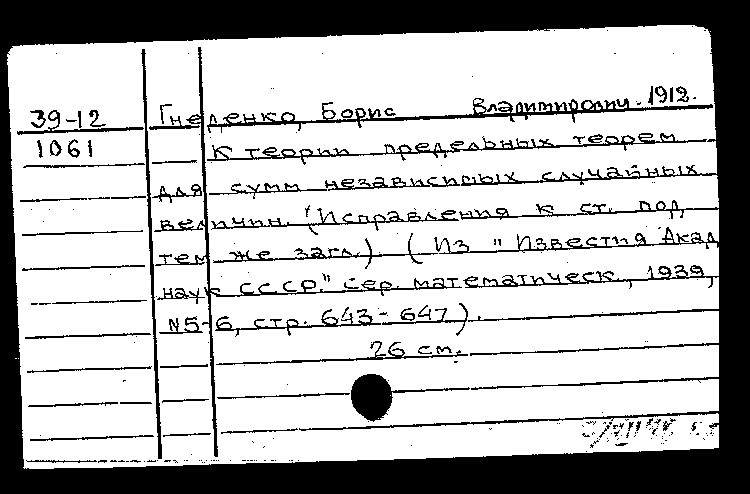 39-12 Гнеденко, Борис Владимирович. 1912.
1061 К теории предельных теорем
для сумм независимых случайных
величин. (Исправления к ст. под
тем же загл.) (Из "Известия Акад
наук СССР." Сер. математическ., 1939,
N5-6, стр. 643-647).
26 см.